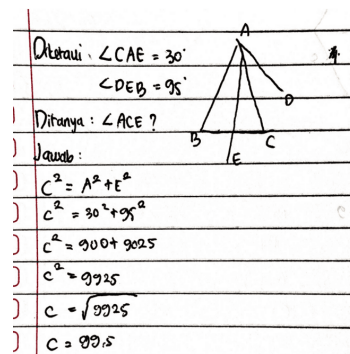 Diketaui : ∠CAE = 30°
∠DEB = 95°
Ditanya : ∠ACE ?
Jawab :
C² = A² + E²
C² = 30² + 95²
C² = 900 + 9025
C² = 9925
C = √9925
C = 99,5
A
D
B
C
E